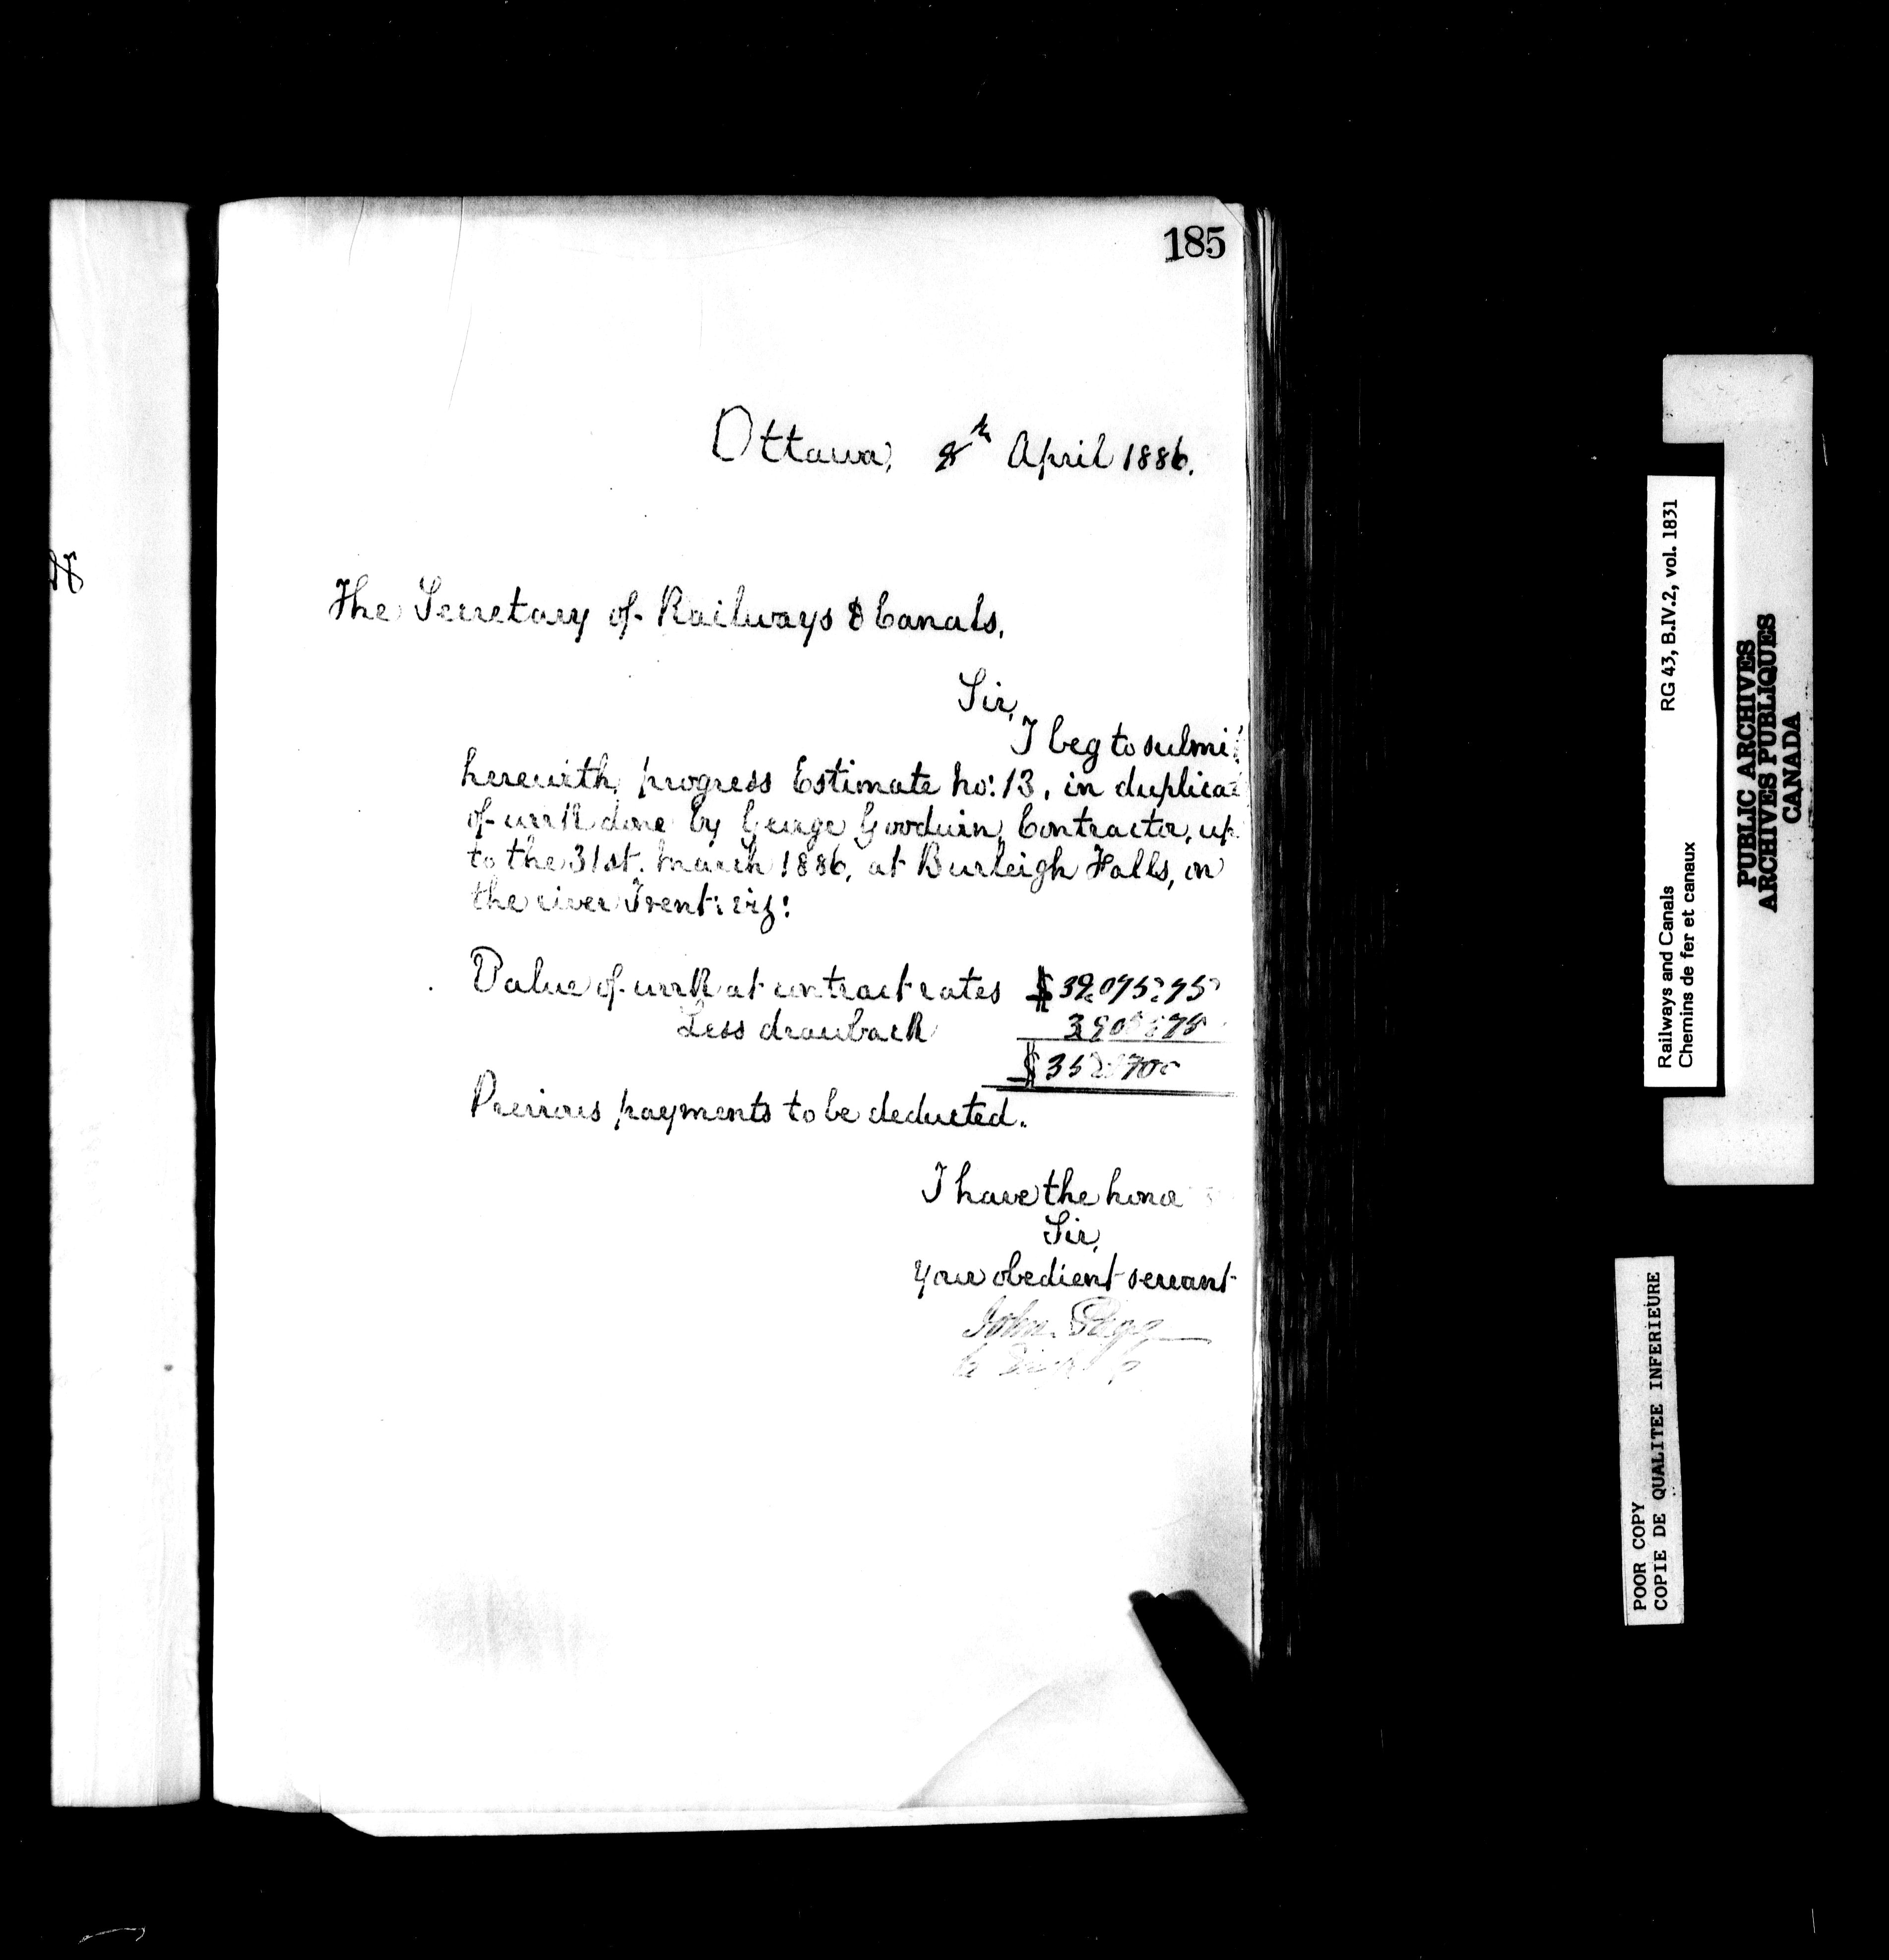 185
Ottawa, 8th April 1886.
The Secretary of Railways & Canals,
Sir,
I beg to submit
herewith, progress Estimate No: 13, in duplica
of work done by George Goodwin, Contractor, up
to the 31st. March 1886, at Burleigh Falls, on
the river Trent: viz:
Value of work at contract rates $39,075.75
Less drawback
Previous payments to be deducted.
I have the honor
Sir,
Your obedient servant
John Page
Railways and Canals RG 43, B.IV.2, vol. 1831
Chemins de fer et canaux
PUBLIC ARCHIVES
ARCHIVES PUBLIQUES
CANADA
POOR COPY
COPIE DE QUALITEE INFERIEURE